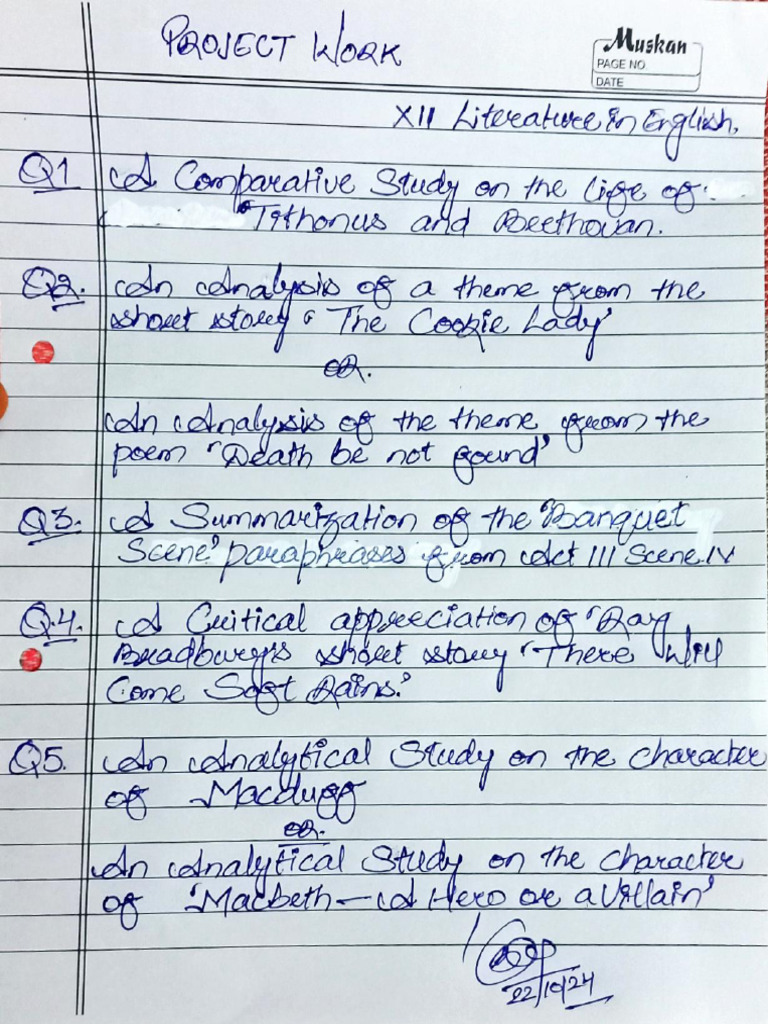 PROJECT WORK
Muskan
PAGE NO.
DATE
XII Literature in English.
Q1 A Comparative Study on the life of
Tithonus and Beethovan.
Q2. An Analysis of a theme from the
short story 'The Cookie Lady'
OR.
An Analysis of the theme from the
poem 'Death be not found'
Q3. A Summarization of the 'Banquet
Scene' paraphrases from Act III Scene.IV
Q.4. A Critical appreciation of 'Ray
Bradbury's short story 'There Will
Come Soft Rains.'
Q5. An Analytical Study on the character
of Macduff
OR.
An Analytical Study on the character
of 'Macbeth – A Hero or a Villain'
22/10/24